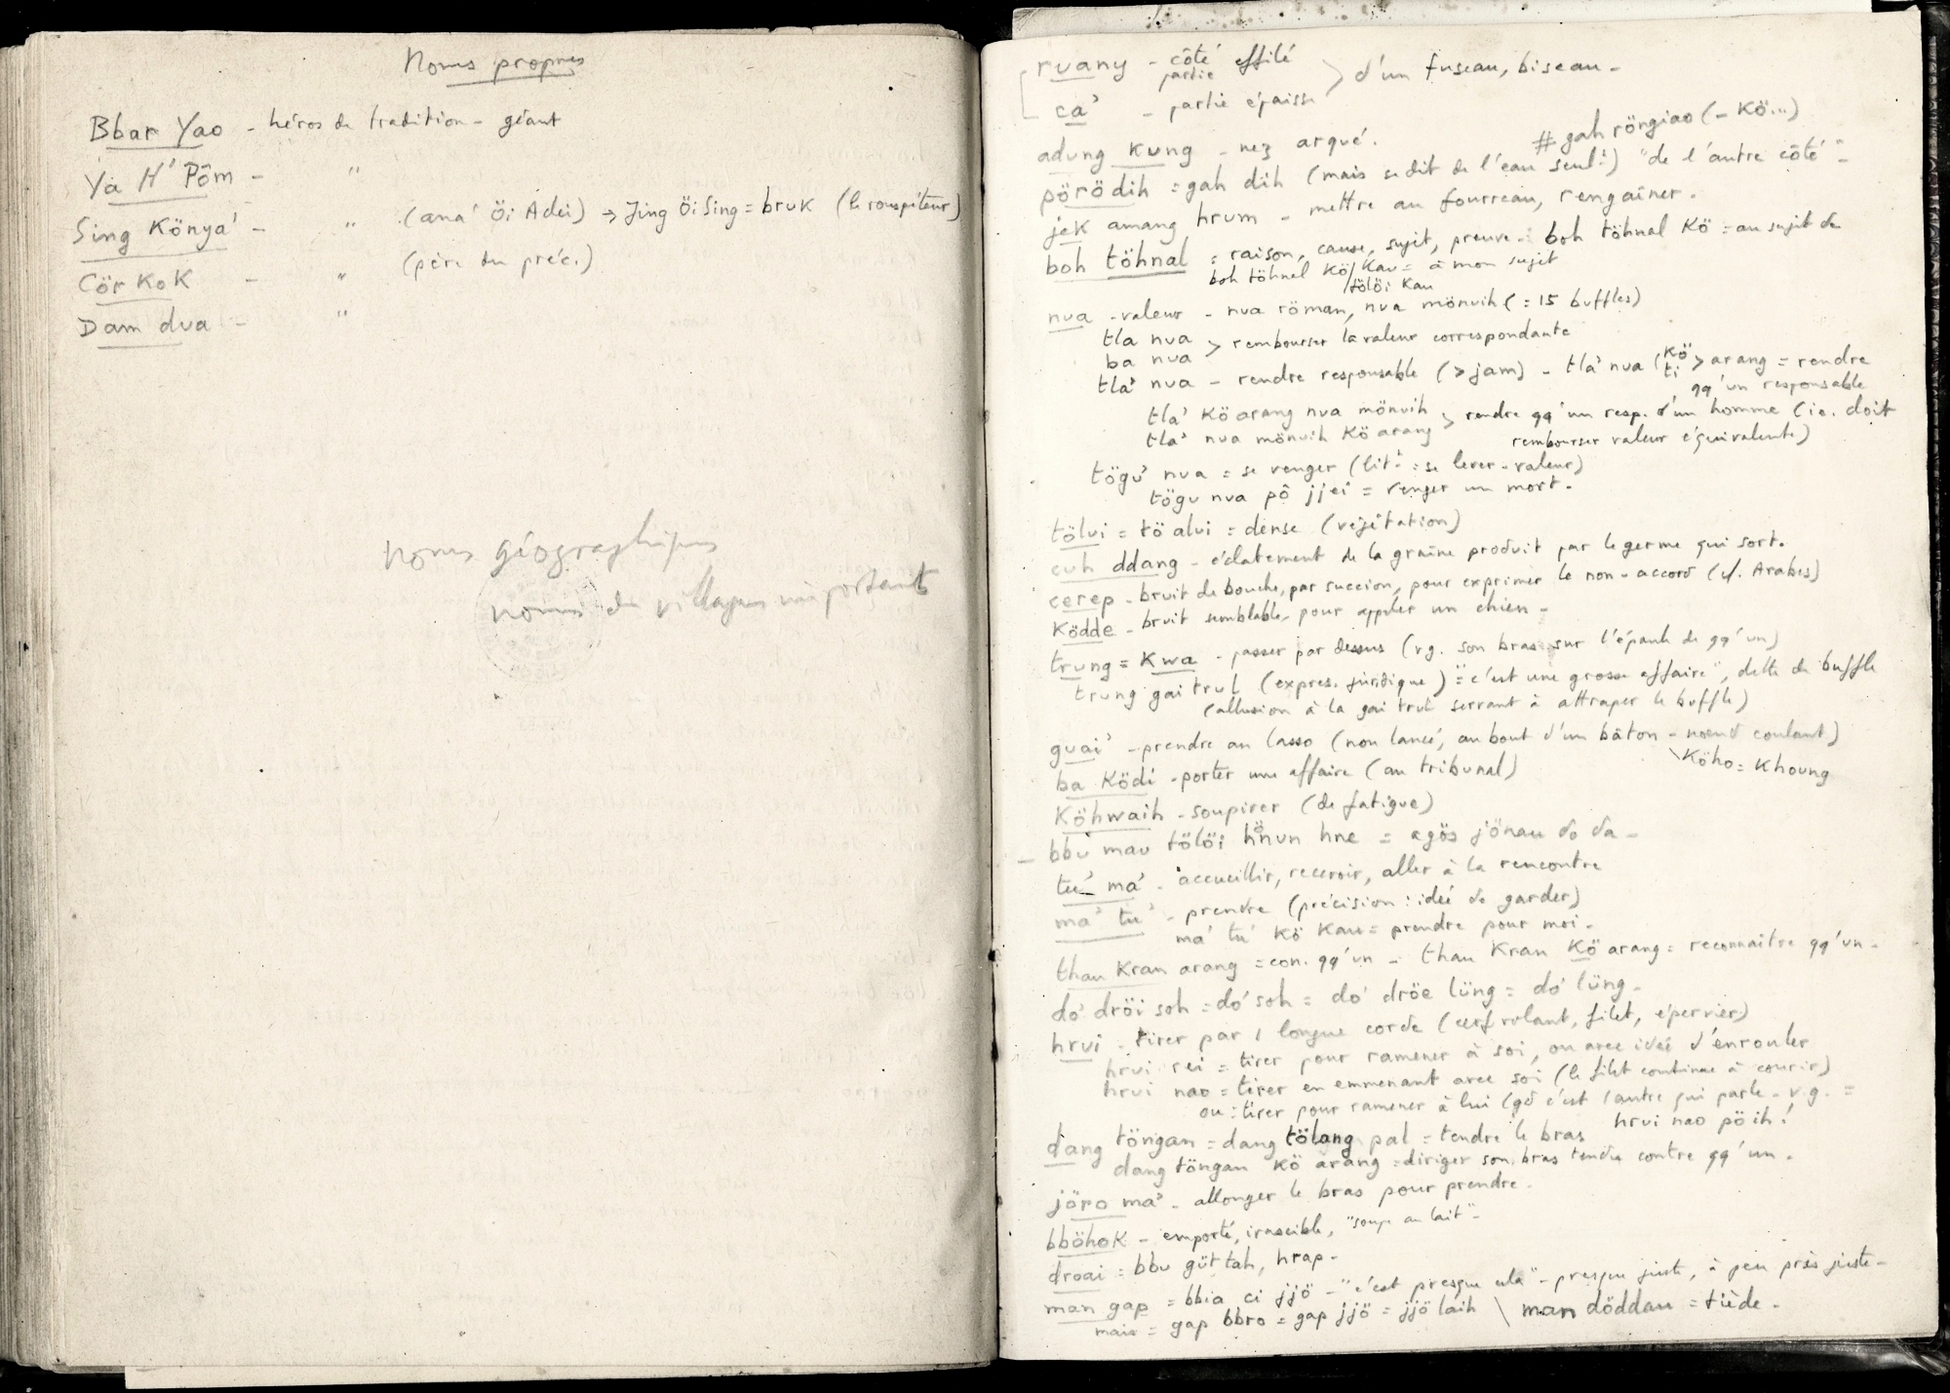 Noms propres
Bbar Yao - héros de tradition - géant
Ya H' Pôm - "
Sing Könya' - " (ana' Öi Adei) → Jing Öi Sing = bruk (le rouspéteur)
Cör Kok - " (père du préc.)
Dam dua - "
noms géographiques
noms de villages importants
ruang - côté effilé
partie
ca' - partie épaisse > d'un fuseau, biseau -
adung kung - nez arqué.
# gah röngiao (- Kö...)
pörödih = gah dih (mais se dit de l'eau seult) "de l'autre côté" -
jek amang hrum - mettre au fourreau, rengaîner.
boh töhnal = raison, cause, sujet, preuve - boh töhnal Kö = au sujet de
boh töhnal Kö/Kau = à mon sujet
/tölöi Kau
nua - valeur - nua röman, nua mönuih (= 15 buffles)
tla nua
ba nua > rembourser la valeur correspondante
tla' nua - rendre responsable (> jam) - tla' nua (Kö ti > arang = rendre
qq'un responsable
tla' Kö arang nua mönuih
tla' nua mönuih Kö arang > rendre qq'un resp. d'un homme (ie. doit
rembourser valeur équivalente)
tögu' nua = se venger (litt : se lever - valeur)
tögu nua pô jjei = venger un mort.
tölui = tö alui = dense (végétation)
cuh ddang - éclatement de la graine produit par le germe qui sort.
cerep - bruit de bouche, par succion, pour exprimer le non-accord (cf. Arabes)
Ködde - bruit semblable, pour appeler un chien -
trung = Kwa - passer par dessus (vg. son bras sur l'épaule de qq'un)
trung gai trul (expres. juridique) = "c'est une grosse affaire", dette de buffle
(allusion à la gai trul servant à attraper le buffle)
guai' - prendre au lasso (non lancé, au bout d'un bâton - nœud coulant)
\ Köho = Khoung
ba Ködi - porter une affaire (au tribunal)
Köhwaih - soupirer (de fatigue)
- bbu mau tölöi hönun hne = agös jönau do da -
tu' ma' - accueillir, recevoir, aller à la rencontre
ma' tu' - prendre (précision : idée de garder)
ma' tu' Kö Kau = prendre pour moi -
thau Kran arang = con. qq'un - thau Kran Kö arang = reconnaître qq'un -
do' dröi soh = do' soh = do' dröe lüng = do' lüng -
hrui - tirer par 1 longue corde (cerf volant, filet, épervier)
hrui rei = tirer pour ramener à soi, ou avec idée d'enrouler
hrui nao = tirer en emmenant avec soi (le filet continue à courir)
ou : tirer pour ramener à lui (qd c'est l'autre qui parle - v.g. =
hrui nao pö ih!
dang töngan = dang tölang pal = tendre le bras
dang töngan Kö arang = diriger son bras tendu contre qq'un -
jöro ma' - allonger le bras pour prendre -
bböhok - emporté, irascible, "soupe au lait" -
droai = bbu güt tah, hrap -
man gap = bbia ci jjö - "c'est presque cela" - presque juste, à peu près juste -
mais = gap bbro = gap jjö = jjö laih \ man döddau = tiède -